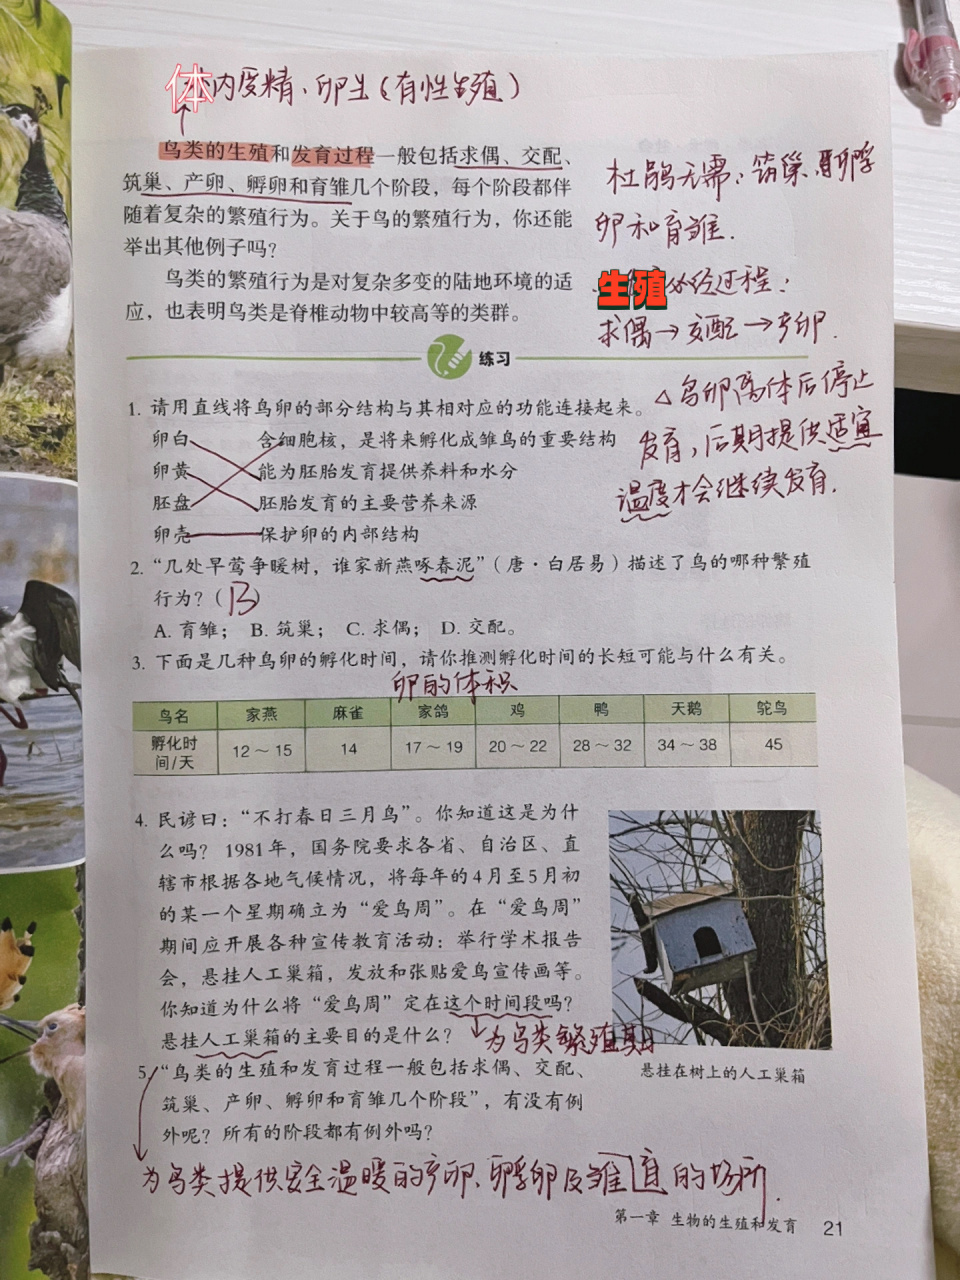 体内受精、卵生(有性生殖)
鸟类的生殖和发育过程一般包括求偶、交配、
筑巢、产卵、孵卵和育雏几个阶段，每个阶段都伴
随着复杂的繁殖行为。关于鸟的繁殖行为，你还能
举出其他例子吗？
鸟类的繁殖行为是对复杂多变的陆地环境的适
应，也表明鸟类是脊椎动物中较高等的类群。
杜鹃无需：筑巢、孵
卵和育雏.
生殖必经过程：
求偶→交配→产卵.
练习
△鸟卵离体后停止
发育，后期提供适宜
温度才会继续发育.
1. 请用直线将鸟卵的部分结构与其相对应的功能连接起来。
卵白 含细胞核，是将来孵化成雏鸟的重要结构
卵黄 能为胚胎发育提供养料和水分
胚盘 胚胎发育的主要营养来源
卵壳 保护卵的内部结构
2. “几处早莺争暖树，谁家新燕啄春泥”（唐·白居易）描述了鸟的哪种繁殖
行为？（B）
A. 育雏； B. 筑巢； C. 求偶； D. 交配。
3. 下面是几种鸟卵的孵化时间，请你推测孵化时间的长短可能与什么有关。
卵的体积
鸟名 家燕 麻雀 家鸽 鸡 鸭 天鹅 鸵鸟
孵化时间/天 12～15 14 17～19 20～22 28～32 34～38 45
4. 民谚曰：“不打春日三月鸟”。你知道这是为什
么吗？ 1981年，国务院要求各省、自治区、直
辖市根据各地气候情况，将每年的4月至5月初
的某一个星期确立为“爱鸟周”。在“爱鸟周”
期间应开展各种宣传教育活动：举行学术报告
会，悬挂人工巢箱，发放和张贴爱鸟宣传画等。
你知道为什么将“爱鸟周”定在这个时间段吗？
悬挂人工巢箱的主要目的是什么？
为鸟类繁殖期
悬挂在树上的人工巢箱
5. “鸟类的生殖和发育过程一般包括求偶、交配、
筑巢、产卵、孵卵和育雏几个阶段”，有没有例
外呢？所有的阶段都有例外吗？
为鸟类提供安全温暖的产卵、孵卵及雏的场所.
第一章 生物的生殖和发育 21